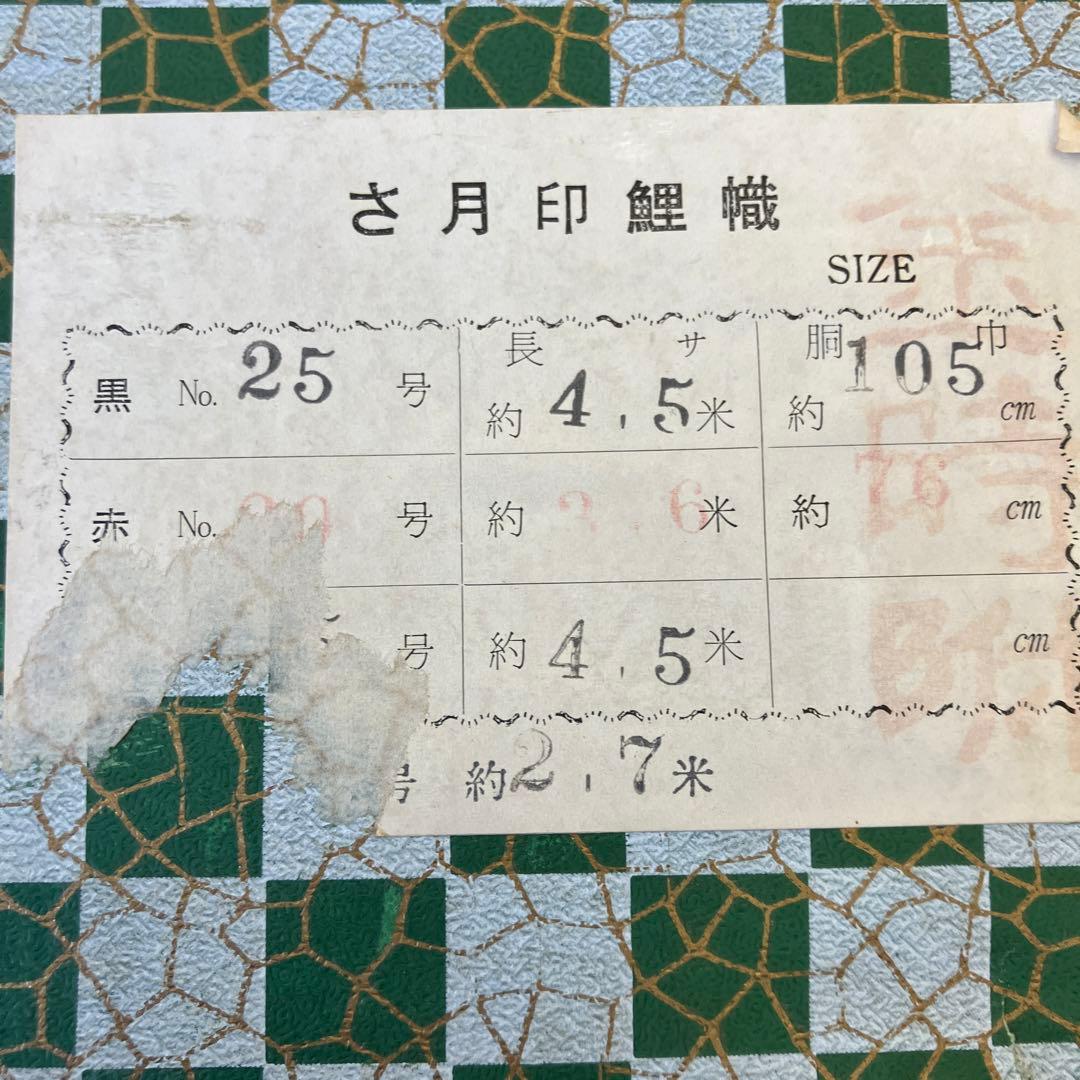 さ月印鯉幟
SIZE
長サ 胴巾
黒 No. 25 号 約 4.5 米 約 105 cm
赤 No. 20 号 約 3.6 米 約 76 cm
号 約 4.5 米 cm
号 約 2.7 米